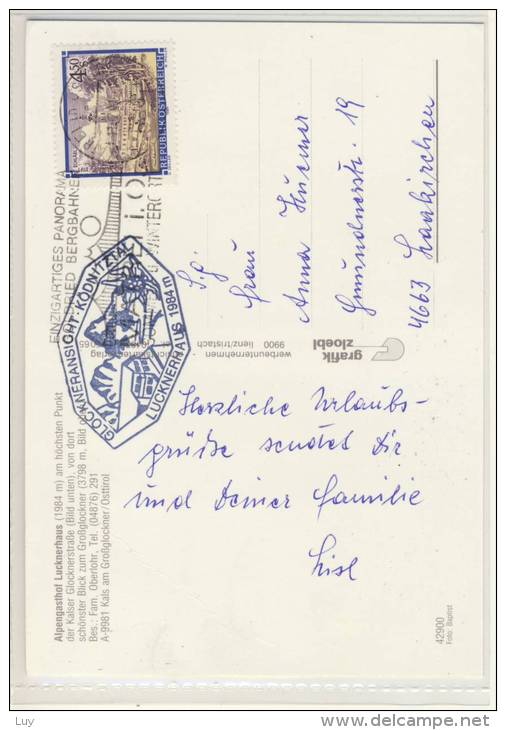 4.50
REPUBLIK ÖSTERREICH
EINZIGARTIGES PANORAMA
BERGBAHNEN
WINTERORT
GLOCKNERANSICHT · KÖDNITZTAL
LUCKNERHAUS 1984 m
S.g.
Frau
Anna Huemer
Gmundnerstr. 19
4663 Laakirchen
Herzliche Urlaubs-
grüße sendet Dir
und Deiner Familie
Lisl
grafik
zloebl
werbeunternehmen
9900 lienz/tristach
Alpengasthof Lucknerhaus (1984 m) am höchsten Punkt
der Kalser Glocknerstraße (Bild unten), von dort
schönster Blick zum Großglockner (3798 m, Bild
Bes.: Fam. Oberlohr, Tel. (04876) 291
A-9981 Kals am Großglockner/Osttirol
42900
Foto: Baptist
Luy
www.delcampe.net